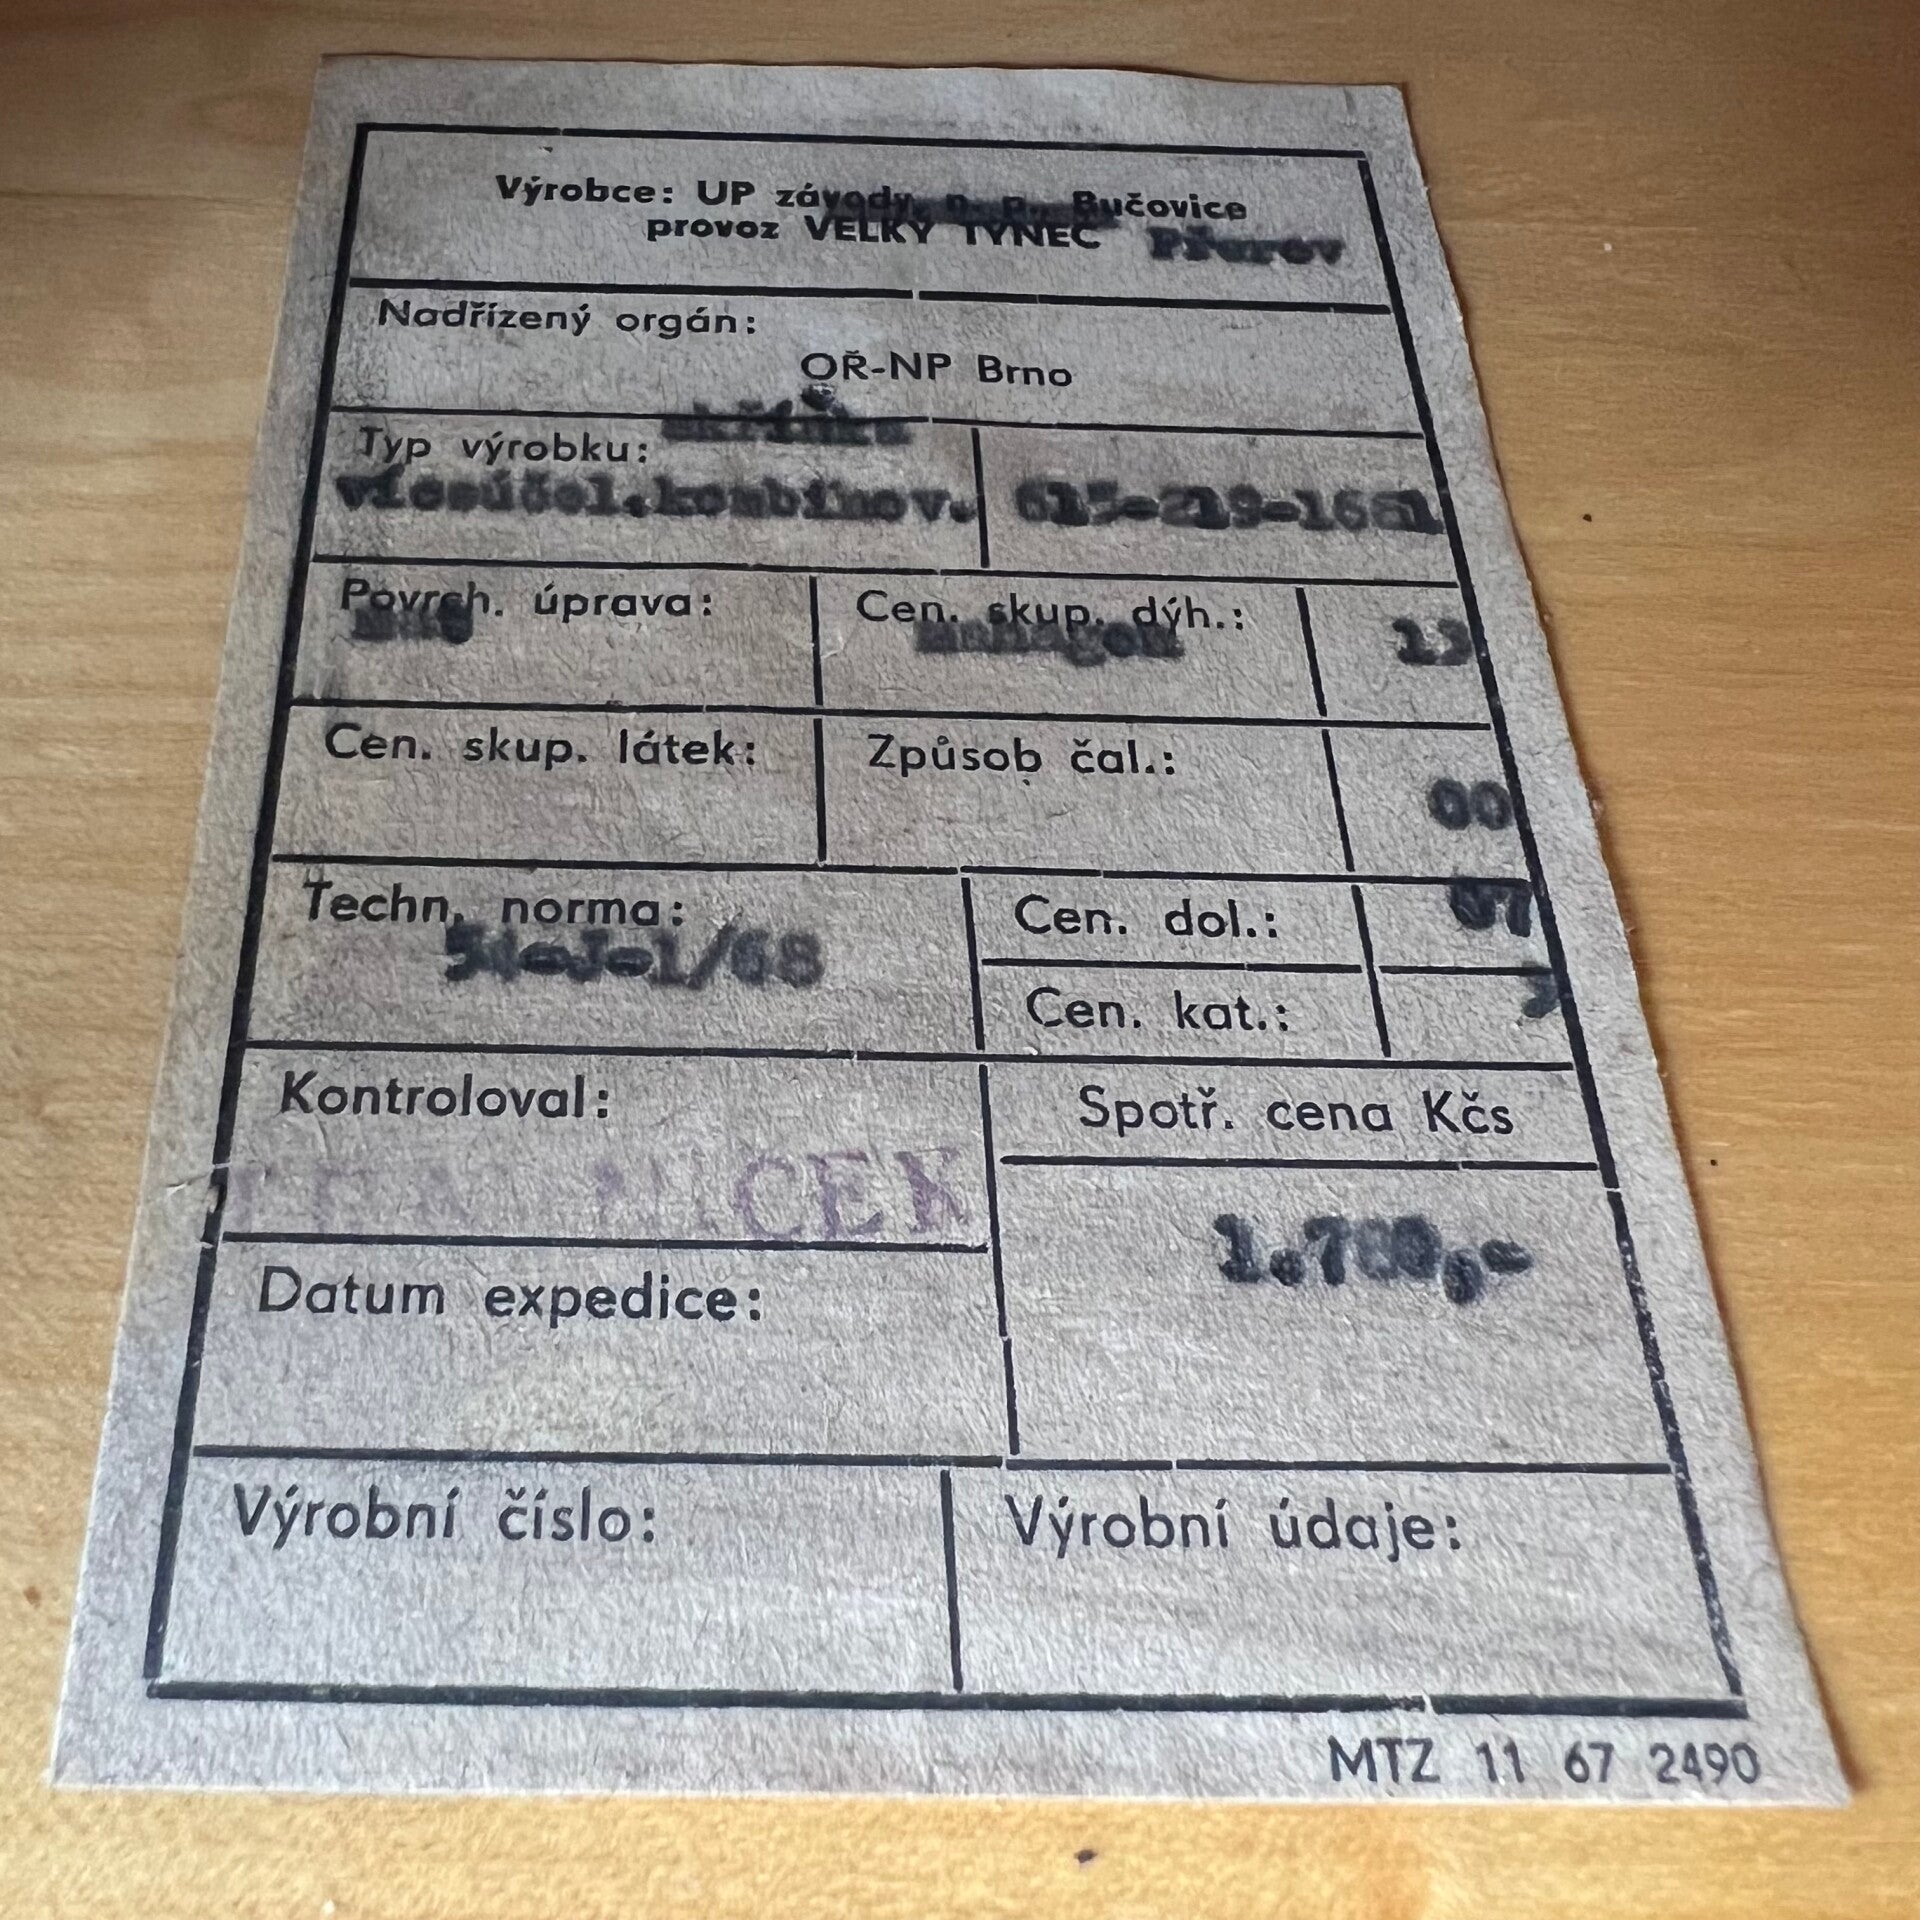 Výrobce: UP závody, n. p., Bučovice
provoz VELKÝ TÝNEC Přerov
Nadřízený orgán:
OŘ-NP Brno
Typ výrobku: skříňka
víceúčel.kombinov.
Povrch. úprava:
Cen. skup. dýh.:
mahagon
13
Cen. skup. látek:
Způsob čal.:
00
Techn. norma:
Cen. dol.:
07
Cen. kat.:
Kontroloval:
Spotř. cena Kčs
Datum expedice:
Výrobní číslo:
Výrobní údaje:
MTZ 11 67 2490